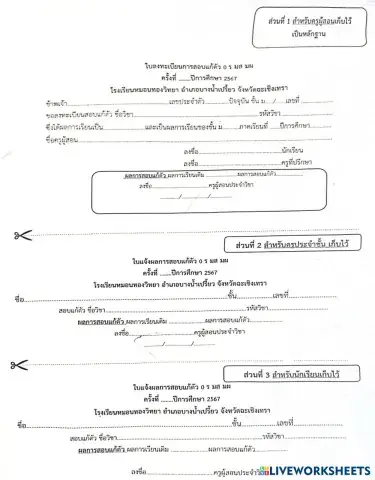 ส่วนที่ 1 สำหรับครูผู้สอนเก็บไว้
เป็นหลักฐาน
ใบลงทะเบียนการสอบแก้ตัว 0 ร มส มผ
ครั้งที่ ......ปีการศึกษา 2567
โรงเรียนหมอนทองวิทยา อำเภอบางน้ำเปรี้ยว จังหวัดฉะเชิงเทรา
ข้าพเจ้า..............................เลขประจำตัว............ปัจจุบัน ชั้น ม......./......เลขที่............
ขอลงทะเบียนสอบแก้ตัว ชื่อวิชา..............................รหัสวิชา....................
ซึ่งได้ผลการเรียนเป็น ..............และเป็นผลการเรียนของชั้น ม.......ภาคเรียนที่ ......ปีการศึกษา............
ชื่อครูผู้สอน..............................
ลงชื่อ..............................นักเรียน
ลงชื่อ..............................ครูที่ปรึกษา
ผลการสอบแก้ตัว ผลการเรียนเดิม ....................ผลการสอบแก้ตัว....................
ลงชื่อ..............................ครูผู้สอนประจำวิชา
......../......../........
ส่วนที่ 2 สำหรับครูประจำชั้น เก็บไว้
ใบแจ้งผลการสอบแก้ตัว 0 ร มส มผ
ครั้งที่ ......ปีการศึกษา 2567
โรงเรียนหมอนทองวิทยา อำเภอบางน้ำเปรี้ยว จังหวัดฉะเชิงเทรา
ชื่อ..............................ชั้น............เลขที่............
สอบแก้ตัว ชื่อวิชา..............................รหัสวิชา....................
ผลการสอบแก้ตัว ผลการเรียนเดิม ....................ผลการสอบแก้ตัว....................
ลงชื่อ..............................ครูผู้สอนประจำวิชา
......../......../........
ส่วนที่ 3 สำหรับนักเรียนเก็บไว้
ใบแจ้งผลการสอบแก้ตัว 0 ร มส มผ
ครั้งที่ ......ปีการศึกษา 2567
โรงเรียนหมอนทองวิทยา อำเภอบางน้ำเปรี้ยว จังหวัดฉะเชิงเทรา
ชื่อ..............................ชั้น............เลขที่............
สอบแก้ตัว ชื่อวิชา..............................รหัสวิชา....................
ผลการสอบแก้ตัว ผลการเรียนเดิม ....................ผลการสอบแก้ตัว....................
ลงชื่อ..............................ครูผู้สอนประจำวิชา
LIVEWORKSHEETS